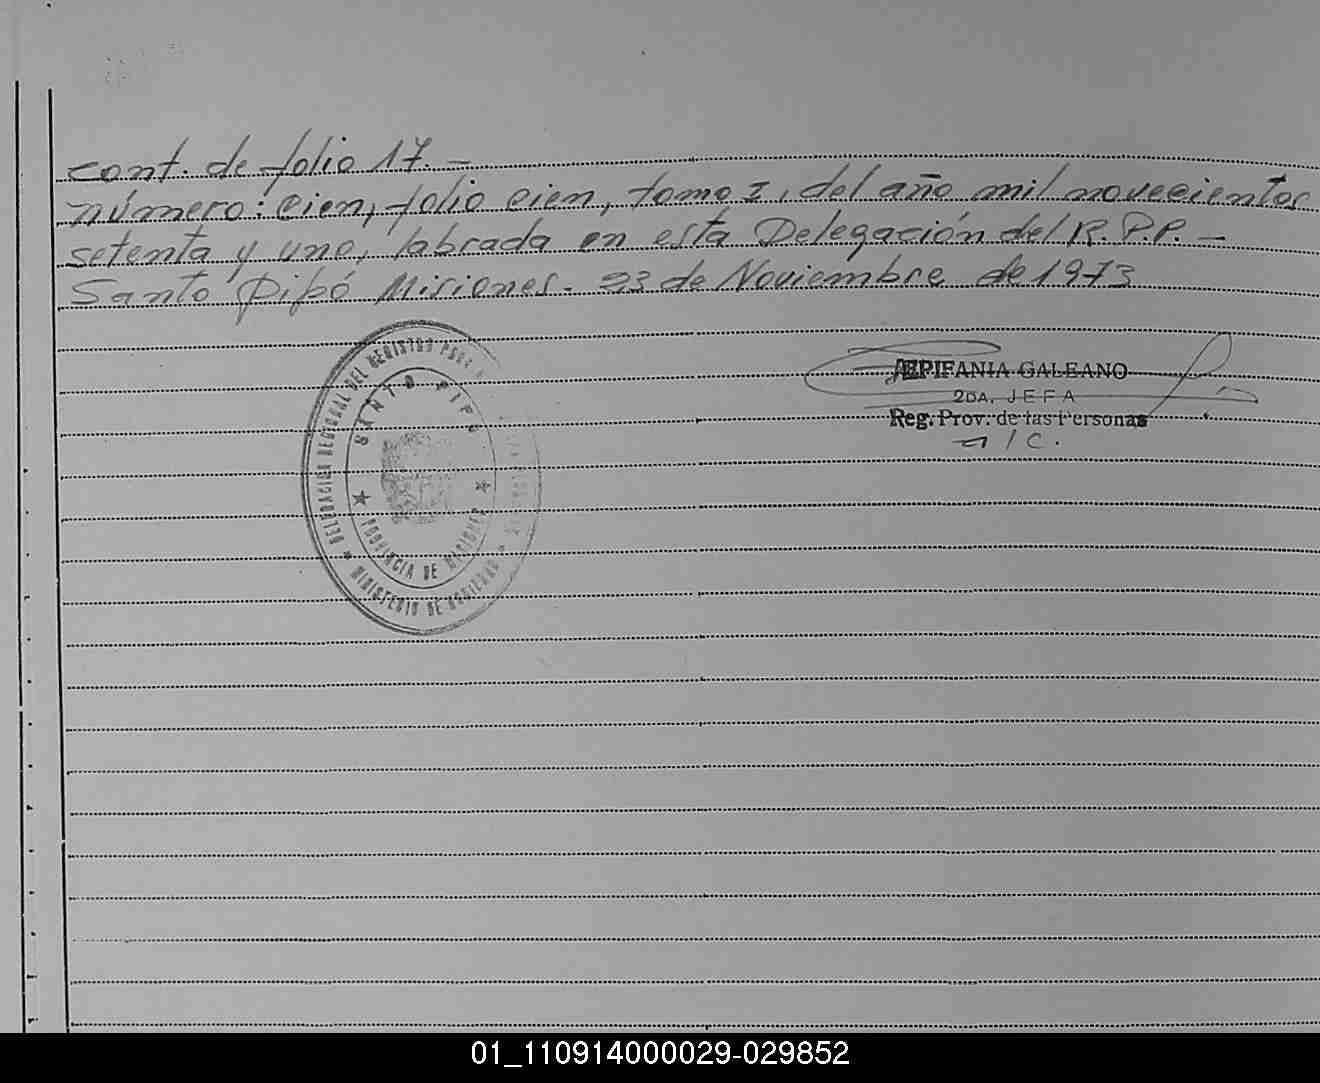 cont. de folio 17. —
número: cien, folio cien, tomo I, del año mil novecientos
setenta y uno, labrada en esta Delegación del R.P.P. —
Santo Pipó Misiones. 23 de Noviembre de 1973
DELEGACIÓN REGIONAL DEL REGISTRO
SANTO PIPÓ
PROVINCIA DE MISIONES
MINISTERIO DE GOBIERNO
EPIFANIA GALEANO
2DA. JEFA
Reg. Prov. de las Personas
a/c.
01_110914000029-029852